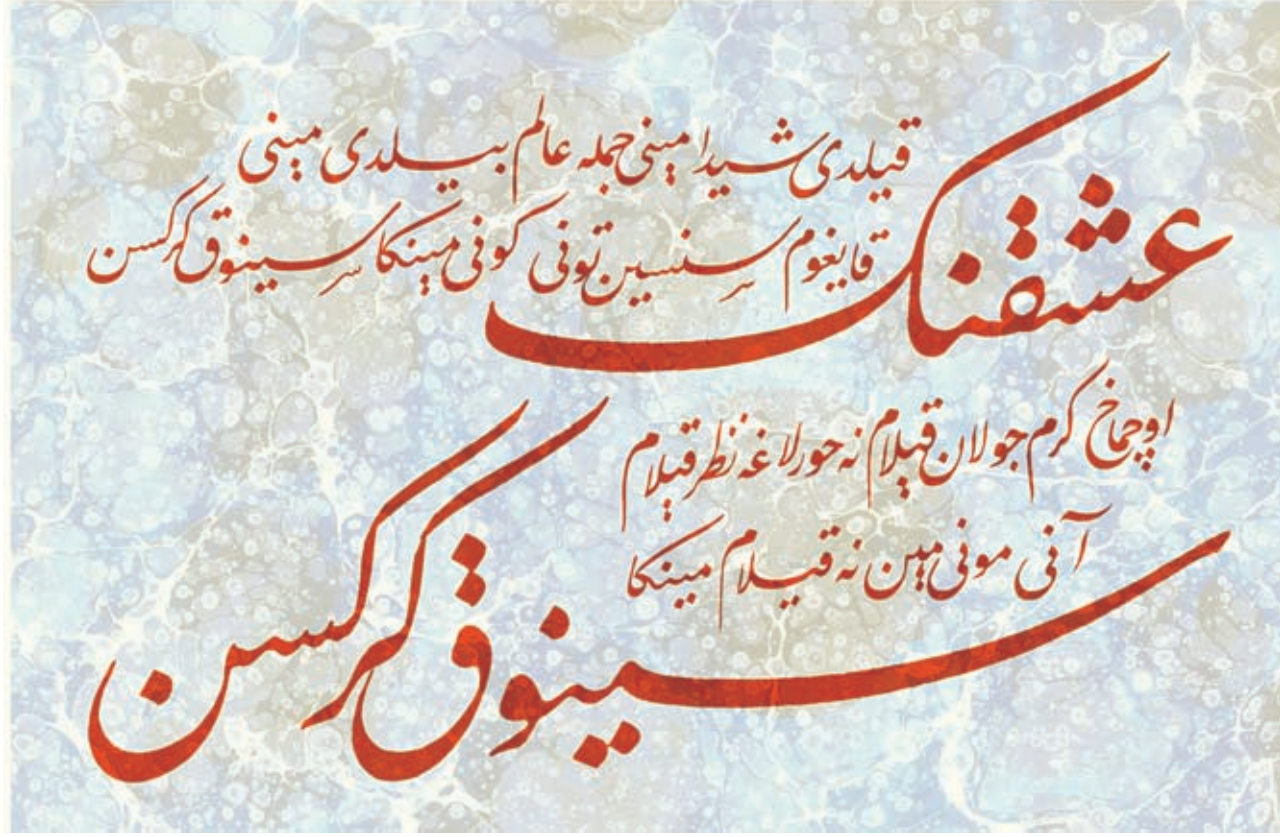 عشقنک
قیلدی شیدا مینی جمله عالم بیلدی مینی
قایغوم سنسین تونی کونی مینکا سینوق کرکسن
اوچماخ کرم جولان قیلام نه حورلاغه نظر قیلام
آنی مونی مین نه قیلام مینکا
سینوق کرکسن